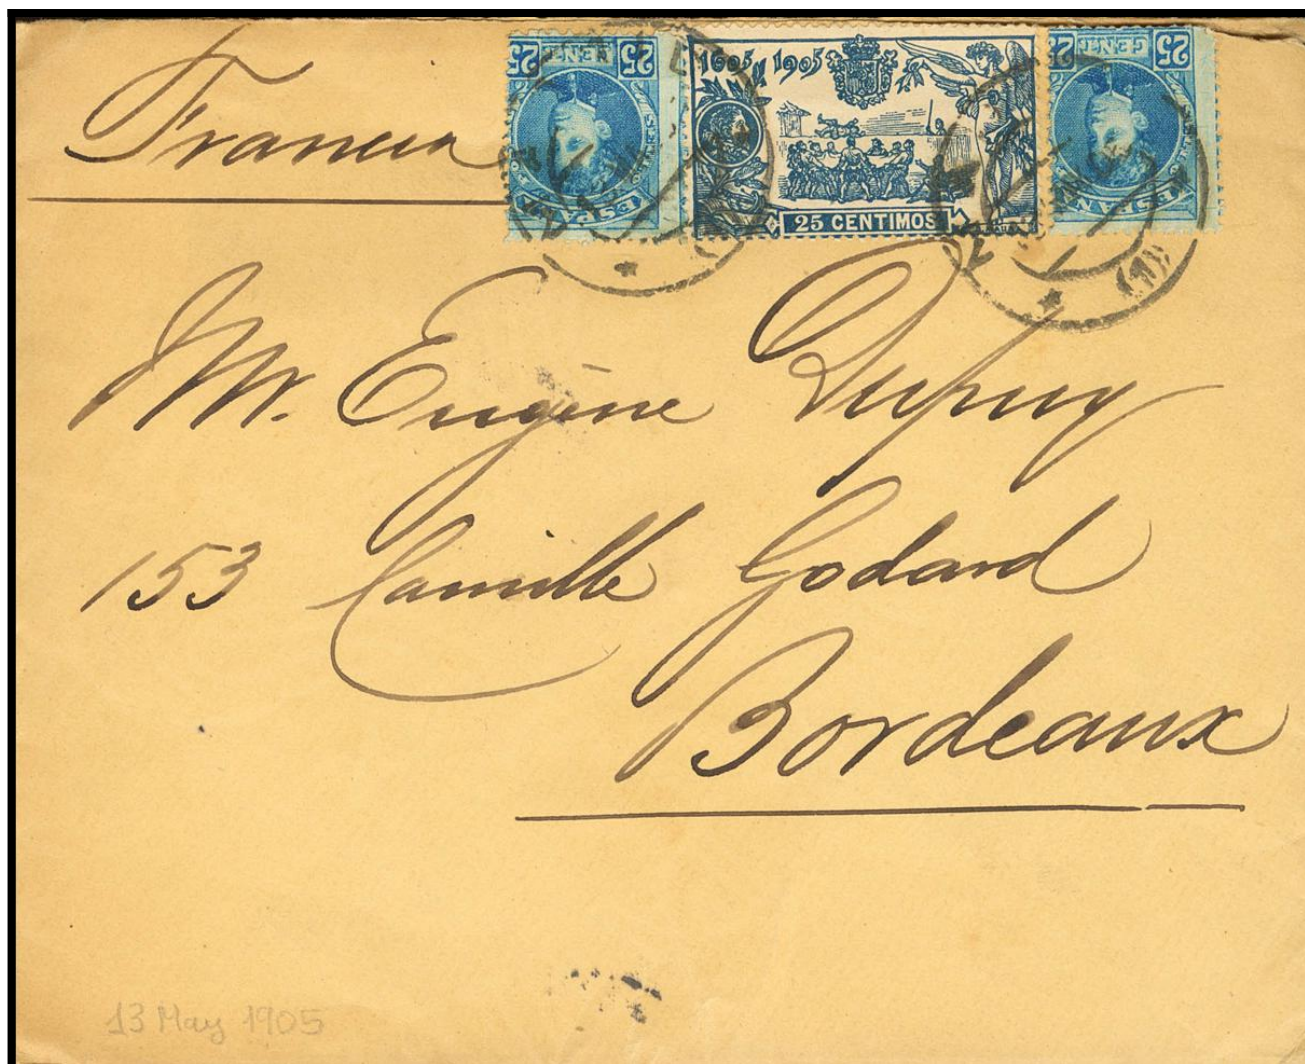 Francia
25 CENT 25
1605 1905
25 CENTIMOS
25 CENT 25
ESPAÑA
Mr. Eugène Dupuy
153 Camille Godard
Bordeaux
13 May 1905